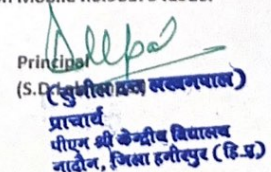 Deepa
Principal
(S.D.
(सुनील दत्त लखनपाल)
प्राचार्य
पीएम श्री केन्द्रीय विद्यालय
नादौन, जिला हमीरपुर (हि.प्र)